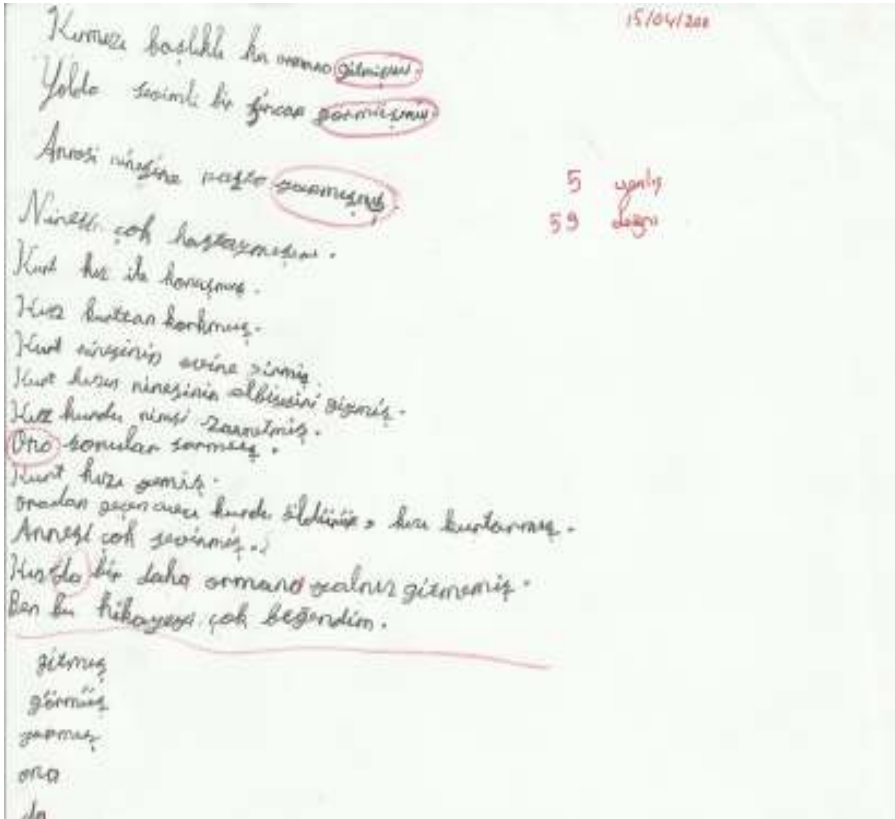 15/04/200
Kırmızı başlıklı kız ormana gitmişmiş.
Yolda sevimli bir sincap görmüşmüş.
Annesi ninesine pasta yapmışmış.
5 yanlış
59 doğru
Ninesi çok hastaymış.
Kurt kız ile konuşmuş.
Kız kurttan korkmuş.
Kurt ninesinin evine girmiş.
Kurt kızın ninesinin elbisesini giymiş.
Kız kurdu ninesi zannetmiş.
Ono sorular sormuş.
Kurt kızı yemiş.
oradan geçen avcı kurdu öldürüp, kızı kurtarmış.
Annesi çok sevinmiş.
Kız da bir daha ormana yalnız gitmemiş.
Ben bu hikayeyi çok beğendim.
gitmiş
görmüş
yapmış
ona
da